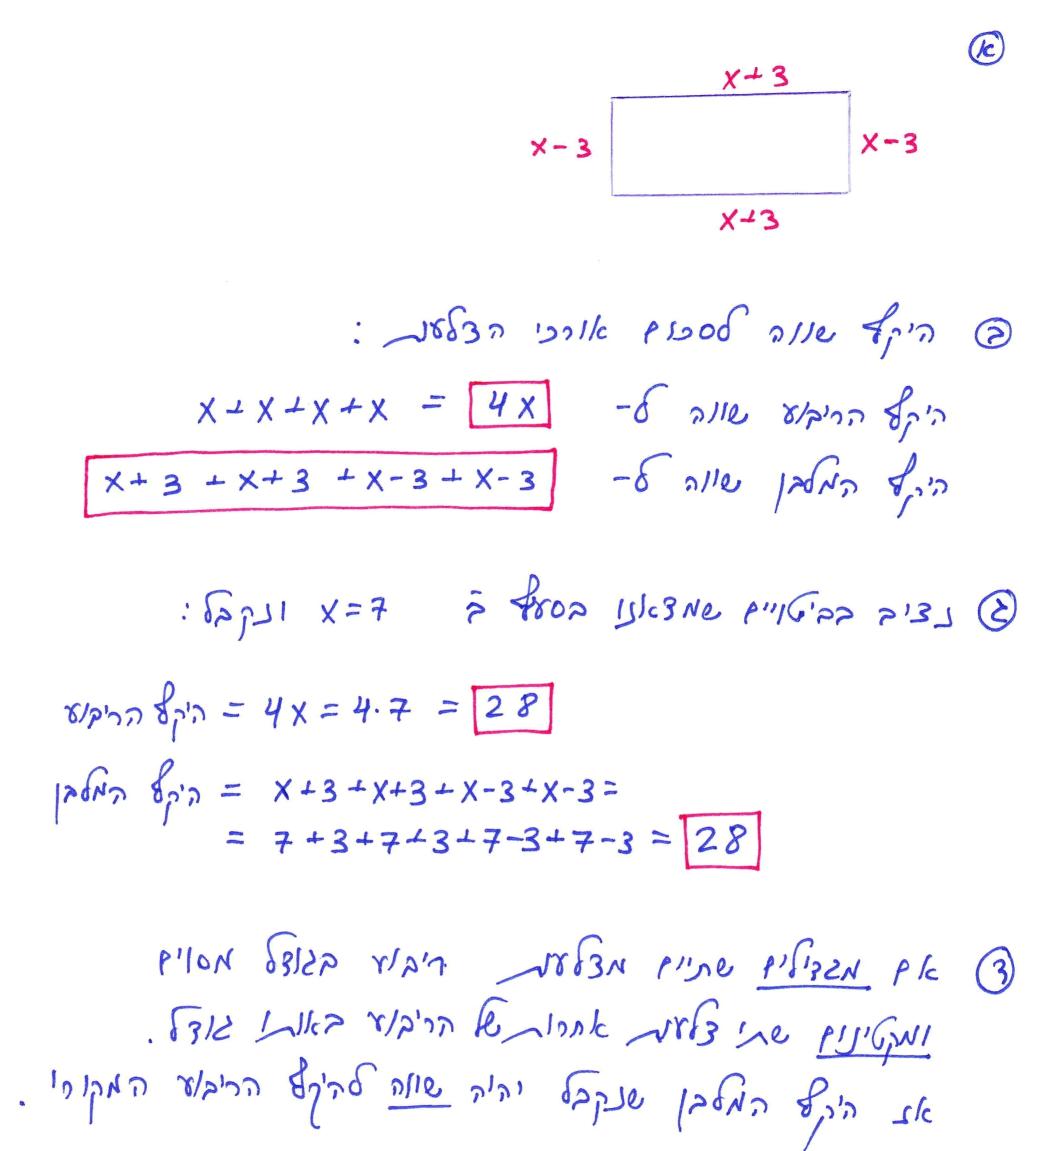 א
x+3
x-3
x-3
x+3
ב היקף שווה לסכום אורכי הצלעות :
היקף הריבוע שווה ל- x+x+x+x = 4x
היקף המלבן שווה ל- x+3+x+3+x-3+x-3
ג נציב בביטויים שמצאנו בסעיף ב x=7 ונקבל:
היקף הריבוע = 4x = 4·7 = 28
היקף המלבן = x+3+x+3+x-3+x-3=
= 7+3+7+3+7-3+7-3 = 28
ד אם מגדילים שתיים מצלעות ריבוע בגודל מסוים
ומקטינים שתי צלעות אחרות של הריבוע באותו גודל.
אז היקף המלבן שנקבל יהיה שווה להיקף הריבוע המקורי.